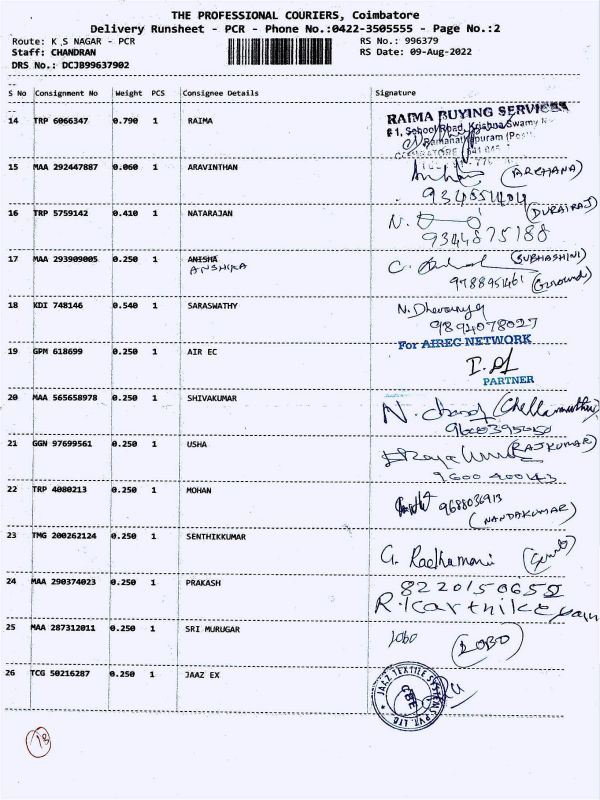 THE PROFESSIONAL COURIERS, Coimbatore
Delivery Runsheet - PCR - Phone No.:0422-3505555 - Page No.:2
Route: K S NAGAR - PCR RS No.: 996379
Staff: CHANDRAN RS Date: 09-Aug-2022
DRS No.: DCJB99637902
S No Consignment No Weight PCS Consignee Details Signature
14 TRP 6066347 0.790 1 RAIMA
RAIMA BUYING SERVICES
15 MAA 292447887 0.060 1 ARAVINTHAN (ARCHANA)
16 TRP 5759142 0.410 1 NATARAJAN (DURAIRAJ)
9344875188
17 MAA 293909005 0.250 1 ANISHA (SUBHASHINI)
ANSHIKA
9788951461 (Ground)
18 KDI 748146 0.540 1 SARASWATHY
9894078027
19 GPM 618699 0.250 1 AIR EC
For AIREC NETWORK
PARTNER
20 MAA 565658978 0.250 1 SHIVAKUMAR
21 GGN 97699561 0.250 1 USHA (RAJKUMAR)
9600400143
22 TRP 4080213 0.250 1 MOHAN 9688036913
(NANDAKUMAR)
23 TMG 200262124 0.250 1 SENTHIKKUMAR G. Radhamani
24 MAA 290374023 0.250 1 PRAKASH 8220150652
R. Karthikeyan
25 MAA 287312011 0.250 1 SRI MURUGAR Lobo (LOBO)
26 TCG 50216287 0.250 1 JAAZ EX
JAAZ TEXTILE SYSTEMS PVT. LTD.
CBE
18